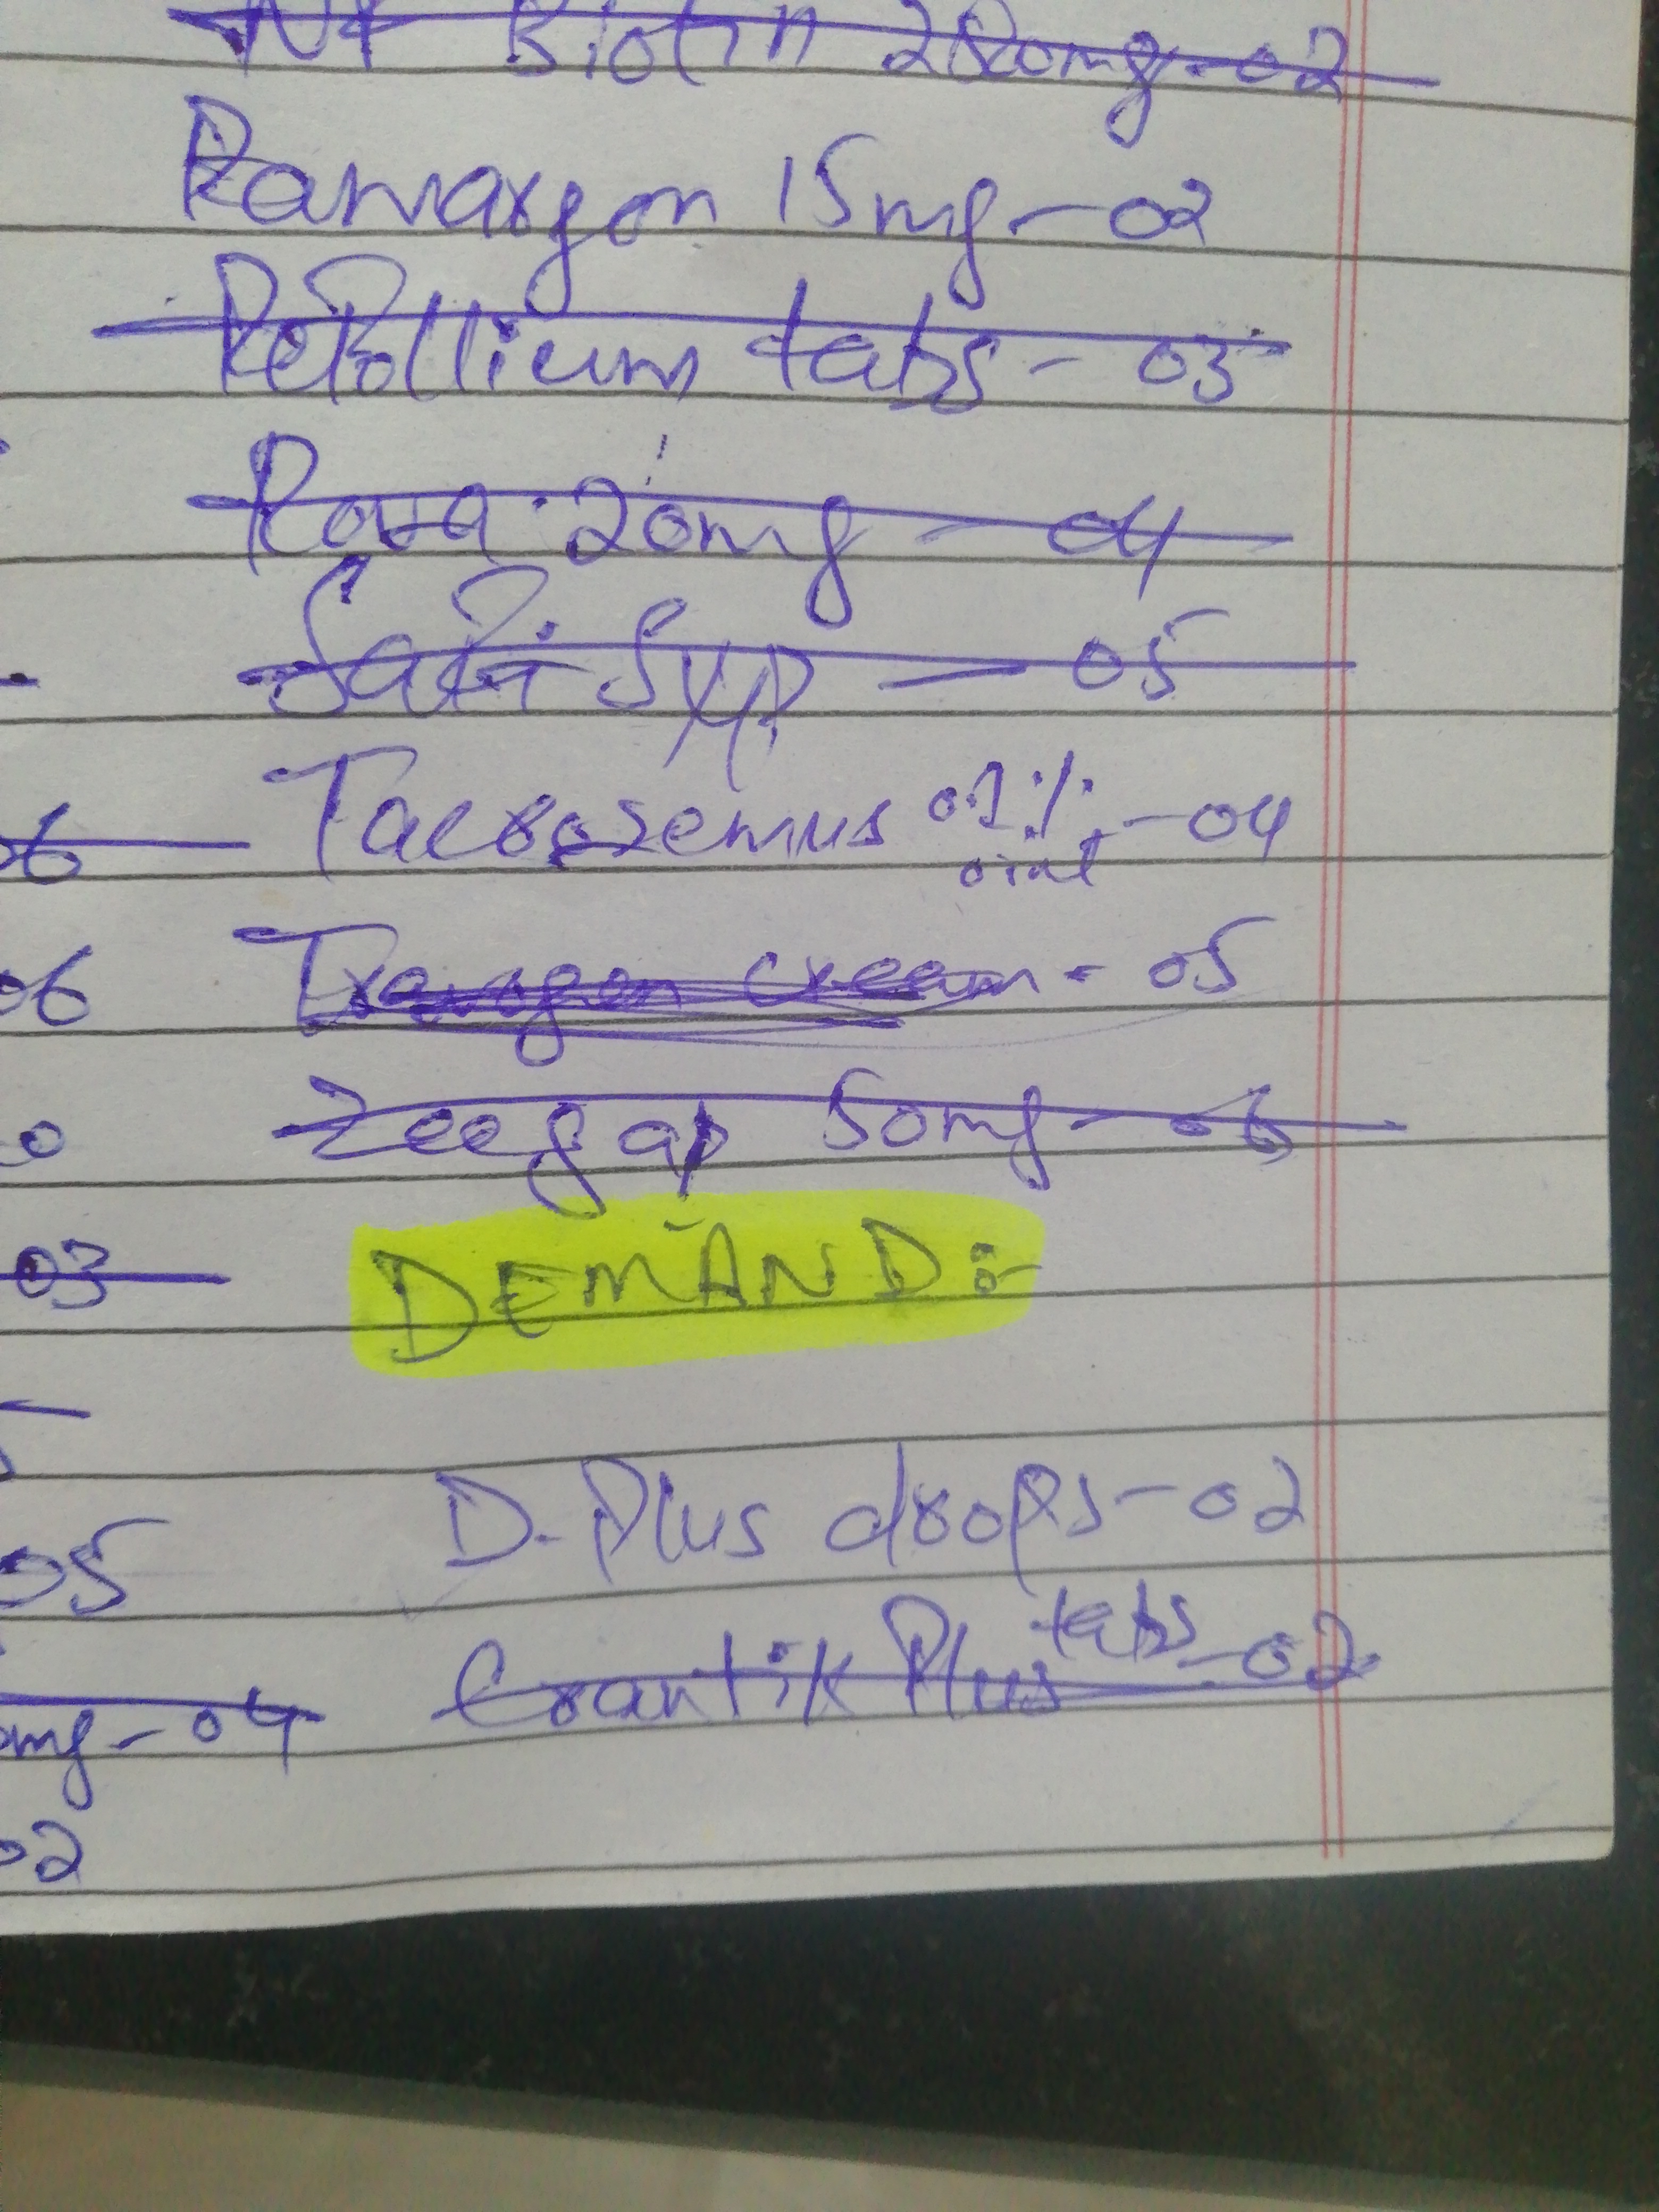 Nt Biotin 2500mg - 02
Ramargon 15mg - 02
Refollium tabs - 03
Rova 20mg - 04
Safi Syp - 05
06 Tacrosemus 0.1% oint - 04
06 cream - 05
0 Zeegap 50mg - 06
03 DEMAND:-
05 D-Plus drops - 02
mg - 04 Crantik Plus tabs - 02
02